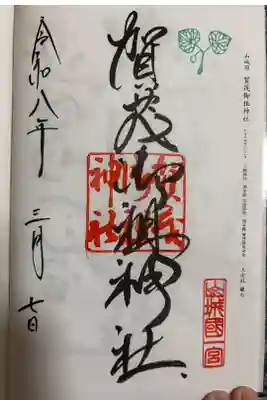 山城国 賀茂御祖神社
賀茂御祖神社
賀茂
神社
山城國一宮
令和八年
三月
七日